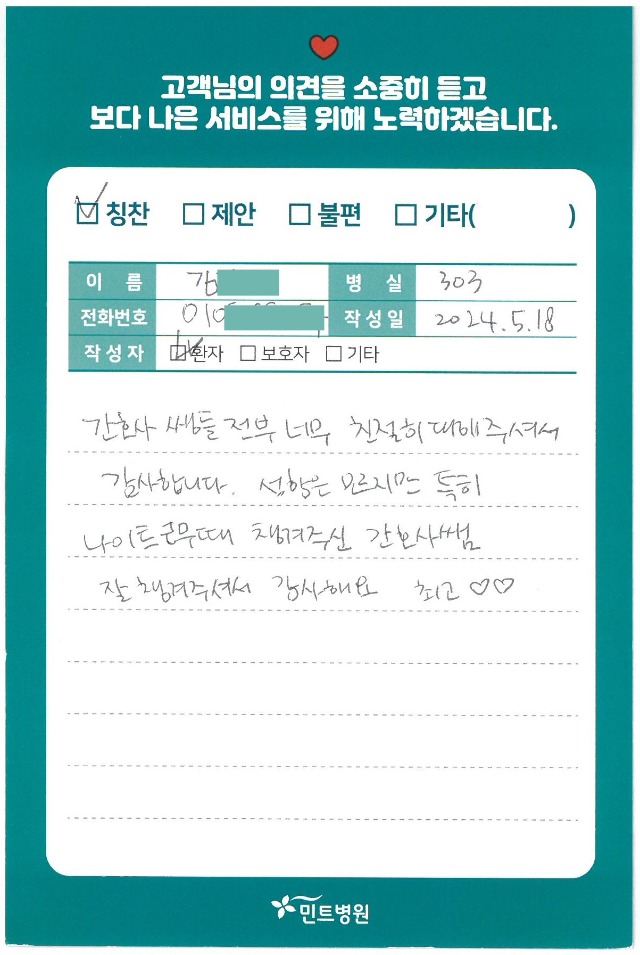 고객님의 의견을 소중히 듣고
보다 나은 서비스를 위해 노력하겠습니다.
칭찬 제안 불편 기타( )
이 름 김 병 실 303
전화번호 010 작성일 2024.5.18
작성자 환자 보호자 기타
간호사 쌤들 전부 너무 친절히 대해주셔서
감사합니다. 성함은 모르지만 특히
나이트근무때 챙겨주신 간호사쌤
잘 챙겨주셔서 감사해요 최고 ♡♡
민트병원